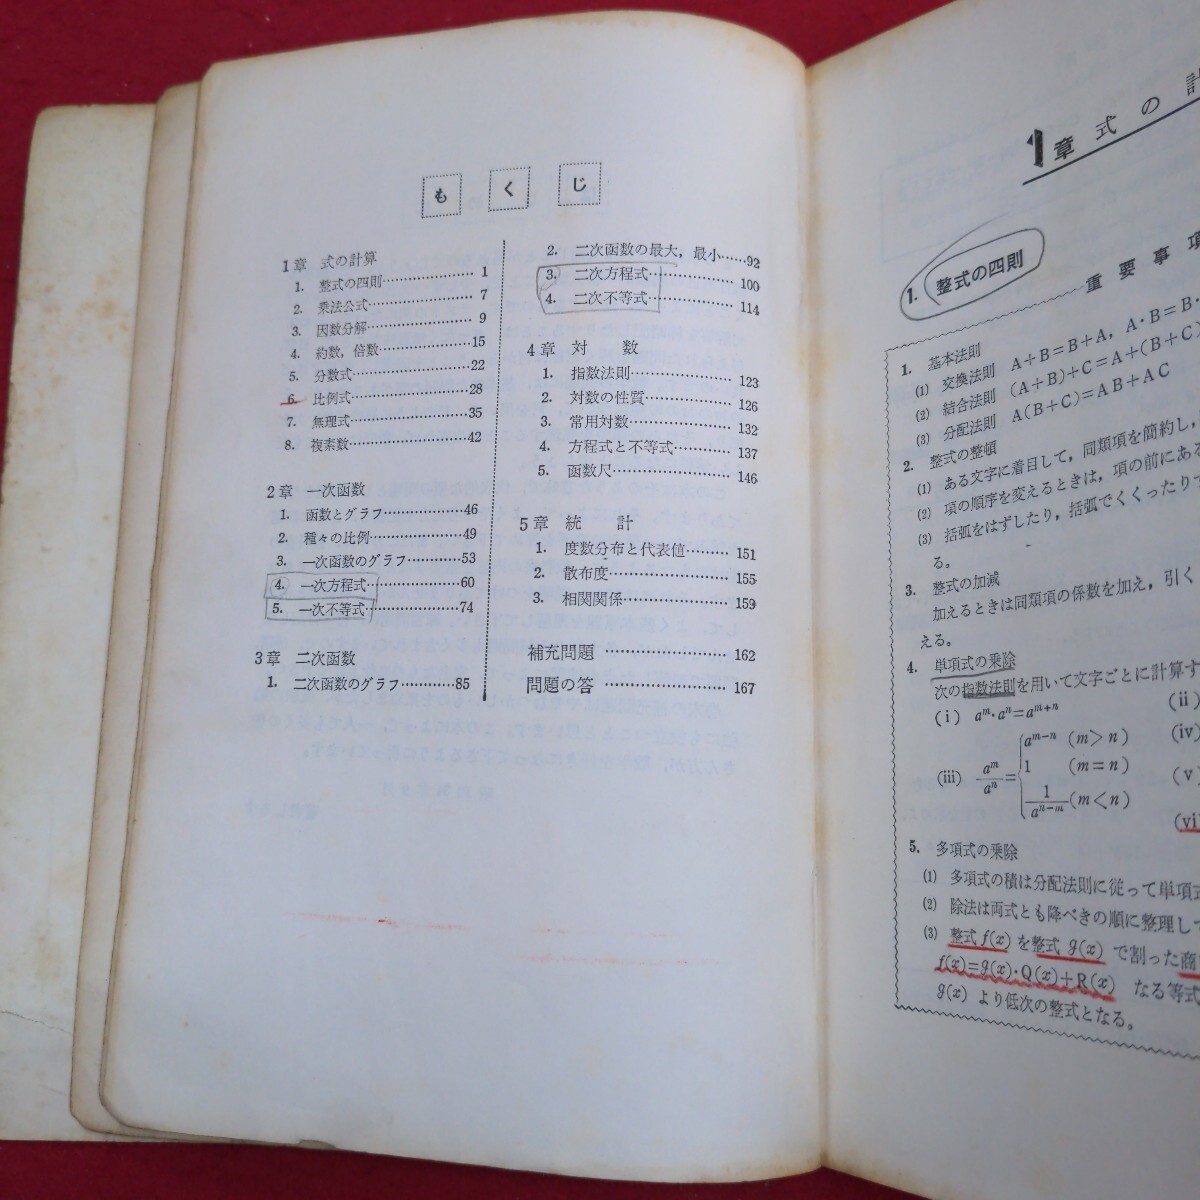 もくじ
1章 式の計算
1. 整式の四則…………………… 1
2. 乗法公式…………………… 7
3. 因数分解…………………… 9
4. 約数，倍数……………………15
5. 分数式……………………22
6. 比例式……………………28
7. 無理式……………………35
8. 複素数……………………42
2章 一次函数
1. 函数とグラフ……………46
2. 種々の比例………………49
3. 一次函数のグラフ………53
4. 一次方程式………………60
5. 一次不等式………………74
3章 二次函数
1. 二次函数のグラフ………85
2. 二次函数の最大，最小……92
3. 二次方程式……………100
4. 二次不等式……………114
4章 対数
1. 指数法則………………123
2. 対数の性質……………126
3. 常用対数………………132
4. 方程式と不等式………137
5. 函数尺…………………146
5章 統計
1. 度数分布と代表値………151
2. 散布度…………………155
3. 相関関係………………159
補充問題 …………………162
問題の答 …………………167
1章 式の計
1. 整式の四則
重要事項
1. 基本法則
(1) 交換法則 A+B=B+A, A・B=B・
(2) 結合法則 (A+B)+C=A+(B+C)
(3) 分配法則 A(B+C)=AB+AC
2. 整式の整頓
(1) ある文字に着目して，同類項を簡約し，
(2) 項の順序を変えるときは，項の前にある
(3) 括弧をはずしたり，括弧でくくったりす
る。
3. 整式の加減
加えるときは同類項の係数を加え，引く
える。
4. 単項式の乗除
次の指数法則を用いて文字ごとに計算す
(i) aᵐ・aⁿ=aᵐ⁺ⁿ (ii)
(iv)
(iii) aᵐ/aⁿ = { aᵐ⁻ⁿ (m>n)
1 (m=n) (v)
1/aⁿ⁻ᵐ (m<n)
(vi
5. 多項式の乗除
(1) 多項式の積は分配法則に従って単項式
(2) 除法は両式とも降べきの順に整理して
(3) 整式 f(x) を整式 g(x) で割った商
f(x)=g(x)・Q(x)+R(x) なる等式
g(x) より低次の整式となる。